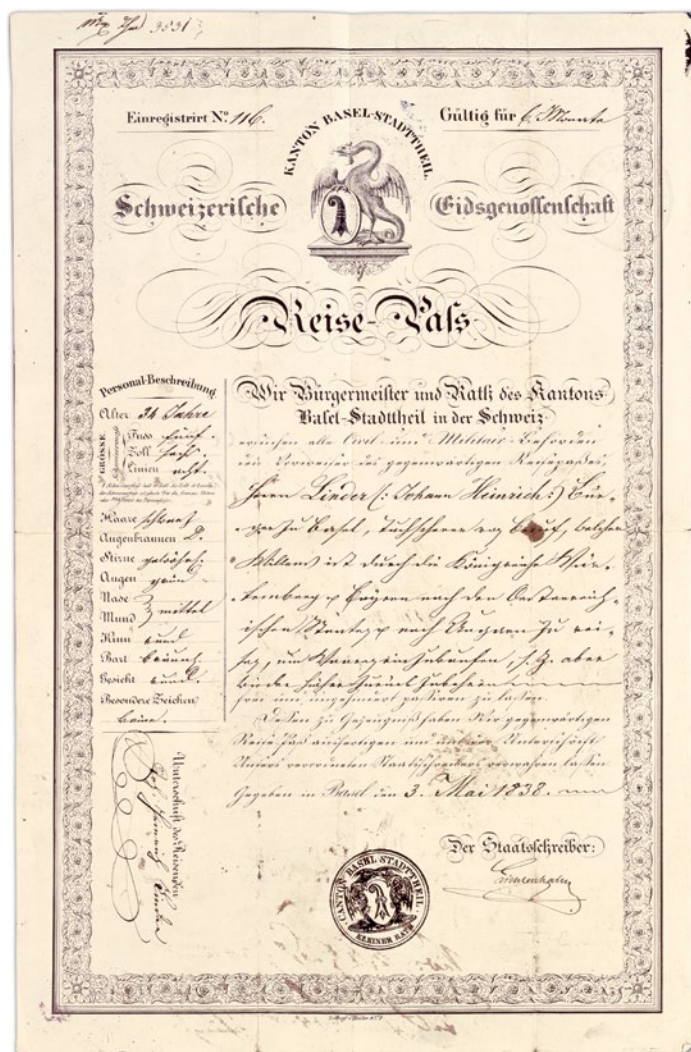 3531
Einregistrirt No. 116.
Gültig für 6 Monate
KANTON BASEL-STADTTHEIL
Schweizerische Eidsgenossenschaft
Reise-Pass
Personal-Beschreibung
Alter 34 Jahre
GRÖSSE
Fuss fünf.
Zoll sechs
Linien acht.
Haare schwarz
Augenbraunen D.
Stirne gewöhnl.
Augen grün
Nase } mittel
Mund
Kinn rund
Bart braun
Gesicht rund.
Besondere Zeichen
keine.
Unterschrift des Reisenden
Joh. Heinrich Linder
Wir Bürgermeister und Rath des Kantons
Basel-Stadttheil in der Schweiz
ersuchen alle Civil- und Militair-Behörden
den Vorweiser des gegenwärtigen Reisepasses,
Herrn Linder (: Johann Heinrich :) Bür-
ger zu Basel, Tuchscherer von Beruf, welcher
Willens ist durch die Königreiche Wür-
temberg u. Bayern nach den Oesterreich-
ischen Staaten u. nach Ungarn zu rei-
sen, um
frei und ungehindert passiren zu lassen.
Dessen zu Gezeugniss haben Wir gegenwärtigen
Reise-Pass ausfertigen und mit der Unterschrift
Unsers verordneten Staatsschreibers verwahren lassen
Gegeben in Basel den 3. Mai 1838.
Der Staatsschreiber:
KANTON BASEL-STADTTHEIL
KLEINER RATH